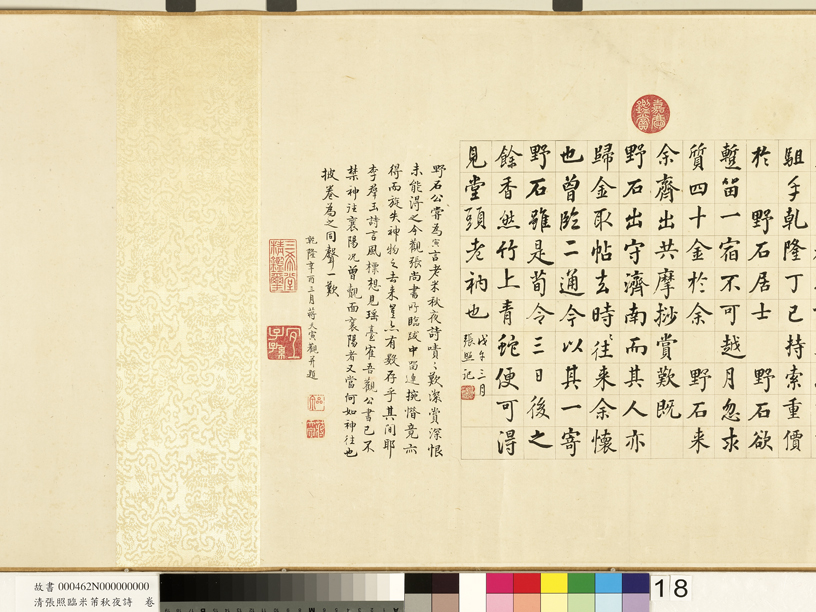 駔手乾隆丁巳持索重價
於野石居士野石欲
蹔留一宿不可越月忽求
質四十金於余野石来
余齋出共摩挲賞歎既
野石出守濟南而其人亦
歸金取帖去時往来余懷
也曾臨二通今以其一寄
野石雖是荀令三日後之
餘香然竹上青蛇便可得
見堂頭老衲也
戊午三月
張照記
嘉慶鑑賞
野石公嘗為寅言老米秋夜詩嘖嘖歎潔賞深恨
未能得之今觀張尚書所臨跋中留連捥惜竟亦
得而旋失神物之去来豈亦有數存乎其间耶
李羣玉詩言風標想見瑶臺雀吾觀公書已不
禁神往襄陽况曾觀面襄陽者又當何如神往也
披卷為之同聲一歎
乾隆辛酉三月蔣大寅觀并題
三希堂精鑑璽
宜子孫
故書 000462N000000000
清張照臨米芾秋夜詩 卷
18